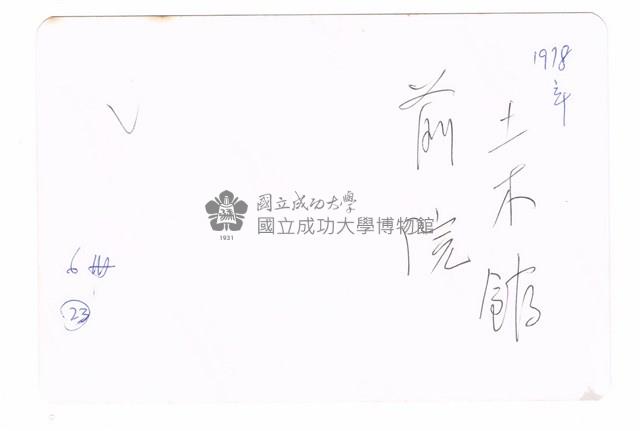 1978年
土木館
前院
國立成功大學
國立成功大學博物館
1931
6冊
23